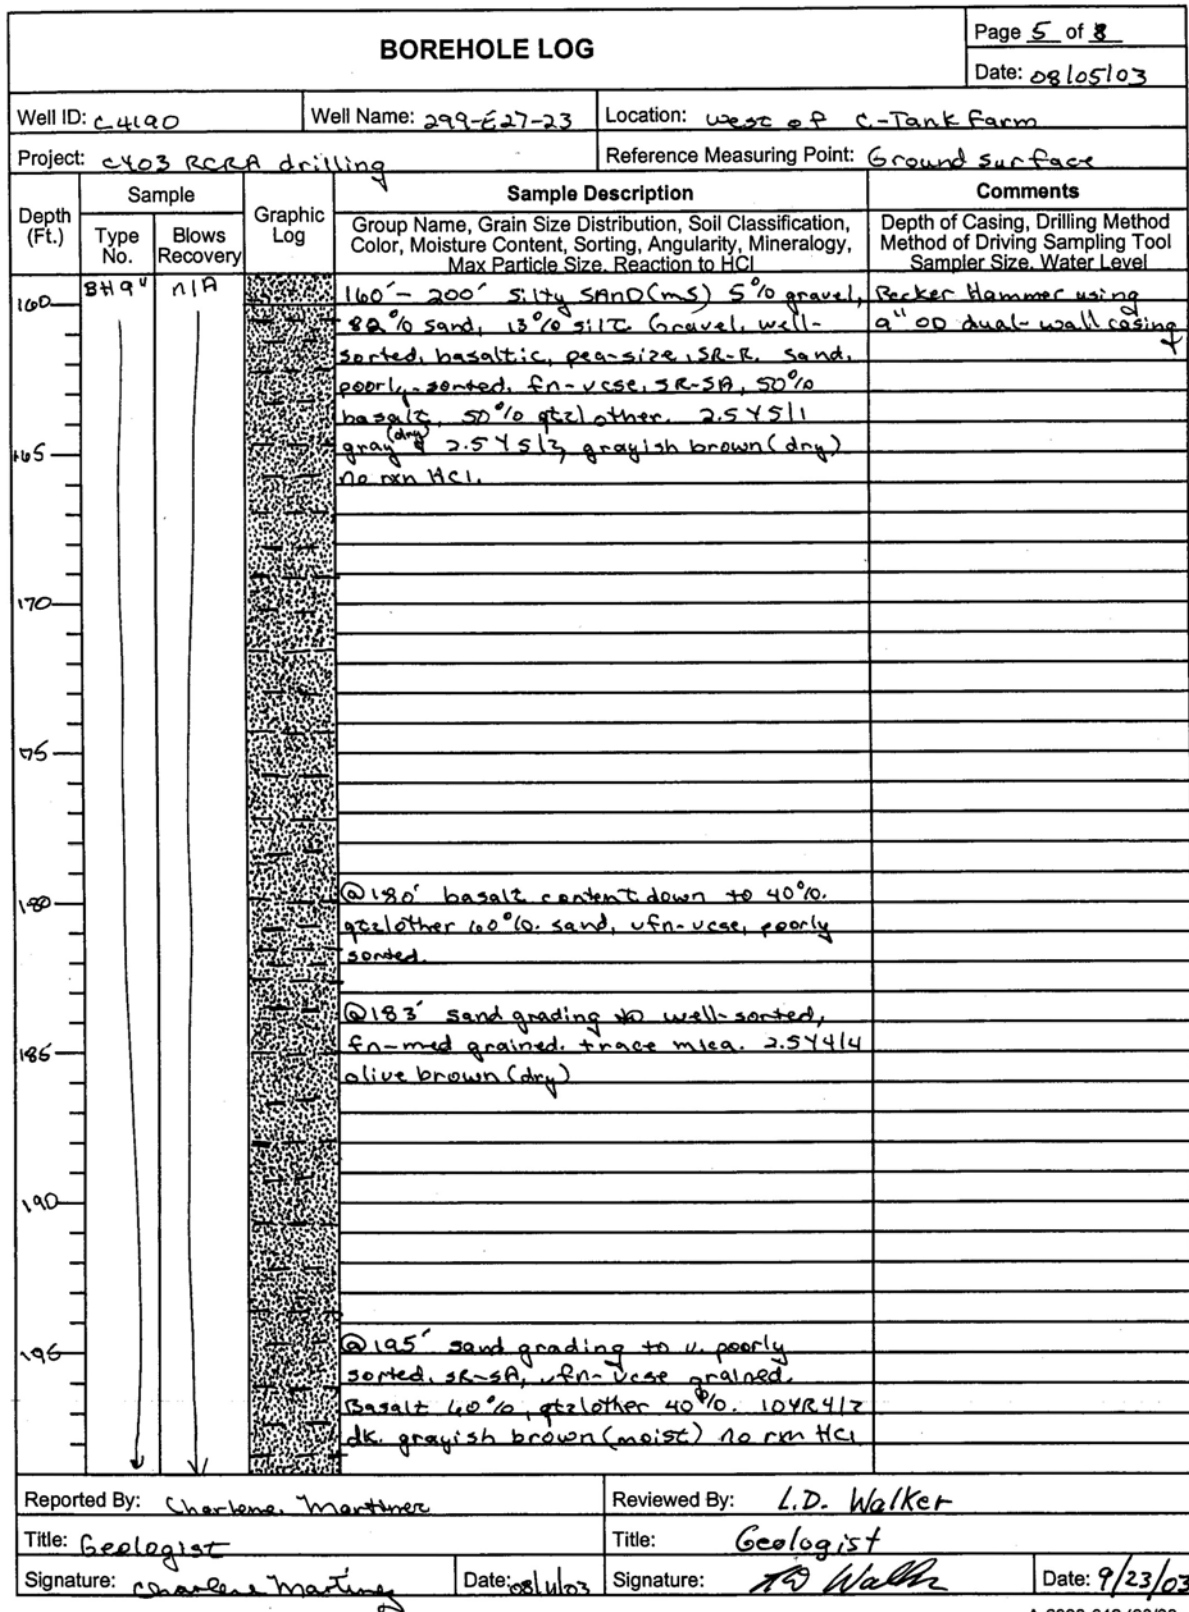 BOREHOLE LOG
Page 5 of 8
Date: 08/05/03
Well ID: C4190
Well Name: 299-E27-23
Location: west of C-Tank Farm
Project: CY03 RCRA drilling
Reference Measuring Point: Ground surface
Depth (Ft.)
Sample
Type No.
Blows Recovery
Graphic Log
Sample Description
Group Name, Grain Size Distribution, Soil Classification,
Color, Moisture Content, Sorting, Angularity, Mineralogy,
Max Particle Size, Reaction to HCl
Comments
Depth of Casing, Drilling Method
Method of Driving Sampling Tool
Sampler Size, Water Level
BH 9" n/A
160
160'- 200' Silty SAND (mS) 5% gravel,
82% sand, 13% silt. Gravel, well-
sorted, basaltic, pea-size, SR-R. Sand,
poorly-sorted, fn-vcse, SR-SA, 50%
basalt, 50% qtz/other. 2.5Y5/1
gray (dry) & 2.5Y5/2, grayish brown (dry)
no rxn HCl.
Becker Hammer using
9" OD dual-wall casing
165
170
175
180
@180' basalt content down to 40%.
qtz/other 60%. sand, vfn-vcse, poorly
sorted.
@183' sand grading to well-sorted,
fn-med grained. trace mica. 2.5Y4/4
olive brown (dry)
185
190
195
@195' sand grading to v. poorly
sorted, SR-SA, vfn-vcse grained.
Basalt 60%, qtz/other 40%. 10YR4/2
dk. grayish brown (moist) no rxn HCl
Reported By: Charlene Martinez
Reviewed By: L.D. Walker
Title: Geologist
Title: Geologist
Signature: Charlene Martinez
Date: 08/11/03
Signature: LD Walker
Date: 9/23/03